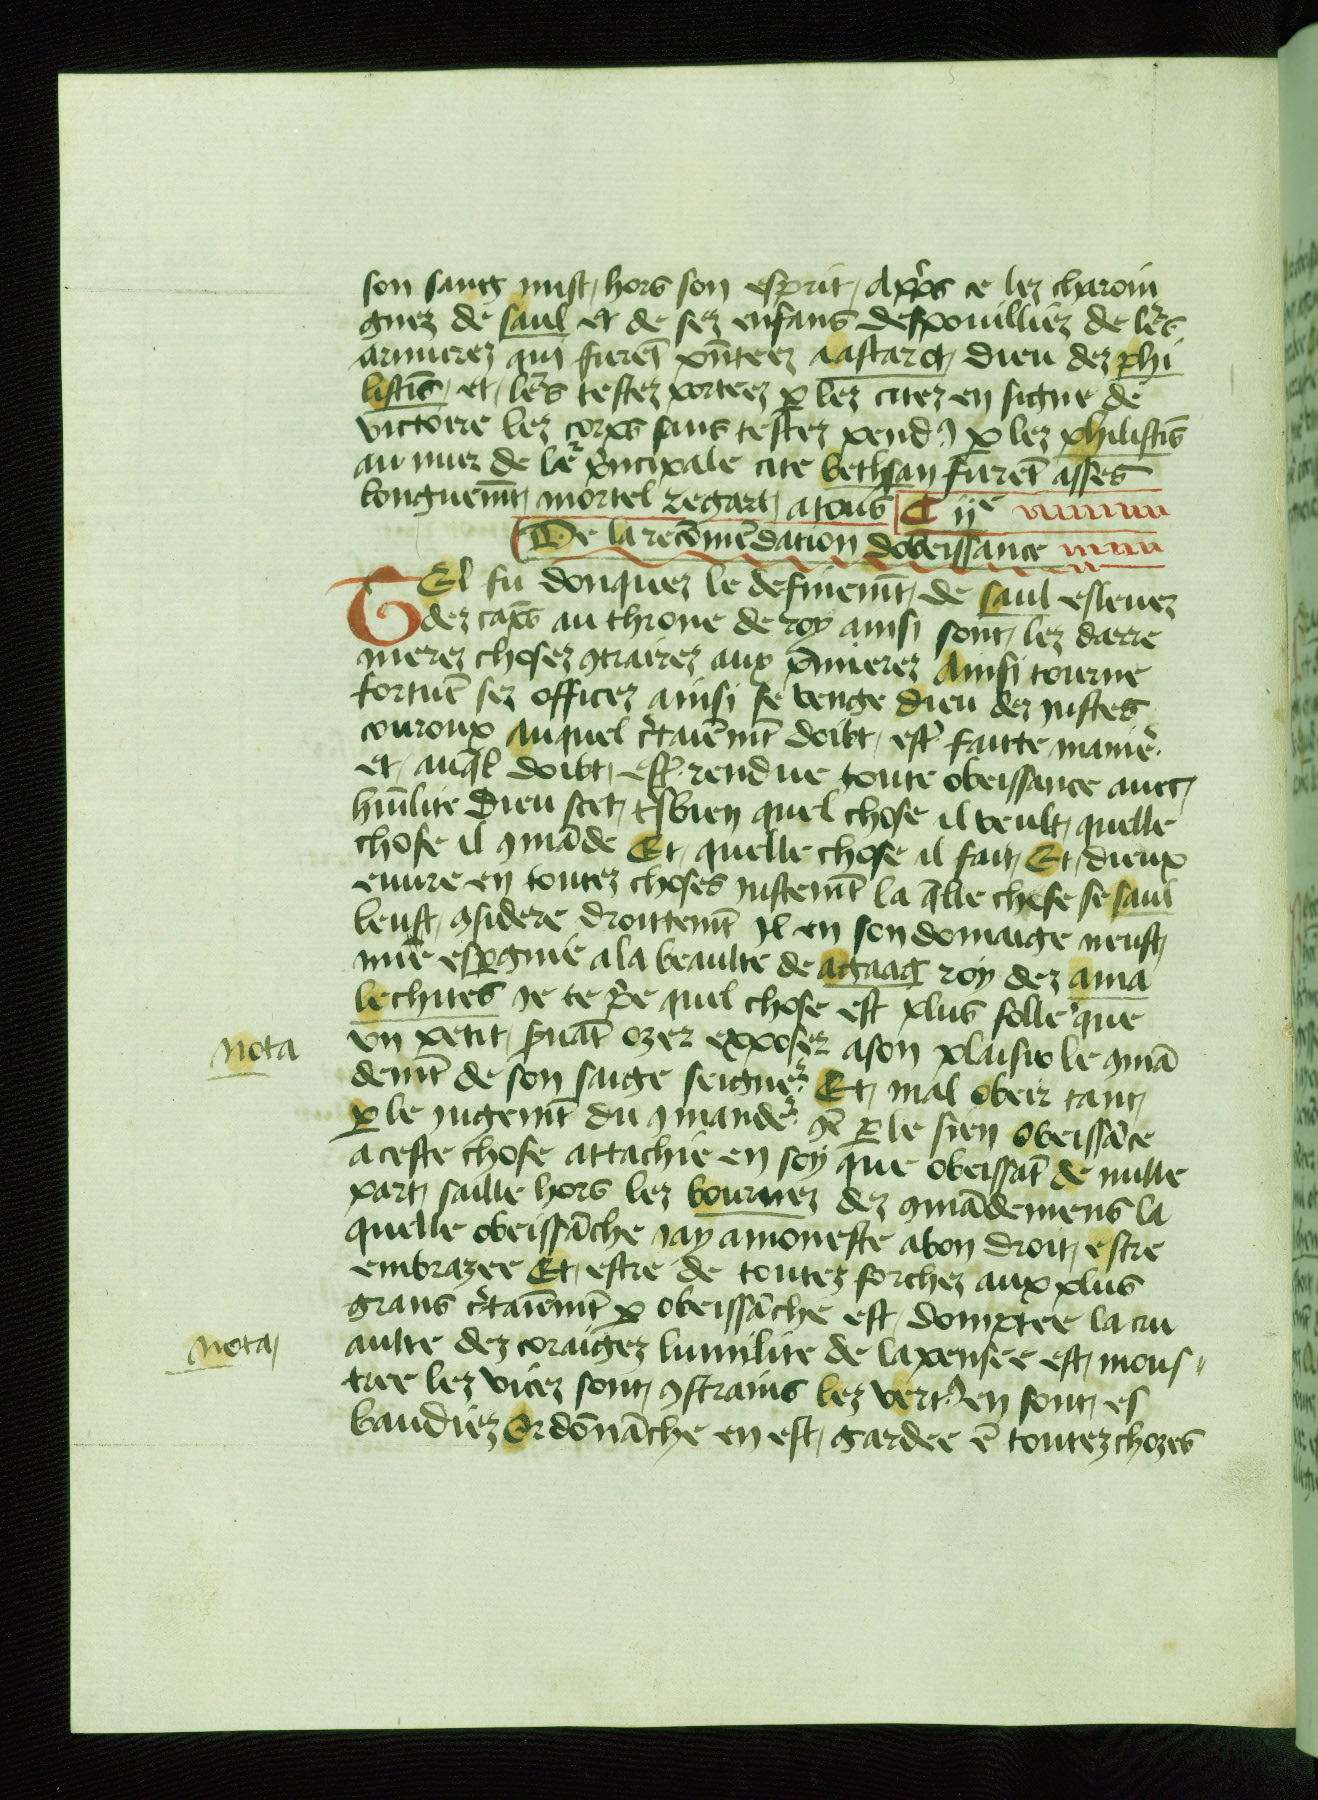 son sang mist hors son esprit Apꝛ̃s ce lez charoin
gnez de saul et de sez enfans despouilliez de lr̃s
armurez qui furẽt pñteez a astarot dieu dez phi
listiẽs et lr̃s testez porteez ꝑ lez citez en signe de
victoire lez corps sans testez pendꝰ ꝑ lez philistiẽs
au mur de lr̃ p̃ncipale cite bethsan furẽt asses
longuemẽt mortel regart a tous C ijᵉ
De la recõmẽdation dobeissance
Tel fu donquez le definemẽt de saul esleuez
dez cãps au throne de roy ainsi sont lez darre
nierez chosez ꝯtrairez aux p̃mierez Ainsi tourne
fortuẽ sez officez ainsi se venge dieu dez iustes
couroux Auquel c̃taiẽmẽt doibt est̾ faitte manie̾
et auq̃l doibt est̾ rendue toute obeissance auec
hũilite Dieu scet t̃sbien quel chose il veult quelle
chose il ꝯmãde Et quelle chose il fait Et dieux
euure en toutez choses iustemẽt la q̃lle chose se saul
leust ꝯsidere droittemẽt Il en son domaige neust
mie espgnie a la beaulte de agaag roy dez ama
lechites Ie te p̃e quel chose est plus folle que
vn petit s̾uãt ozer exposer a son plaisir le ꝯmã
demẽt de son saige seigne̾ Et mal obeir tant
ꝑ le iugemẽt du ꝯmande̾ ꝯẽ ꝑ le sien obeissãce
a ceste chose attachie en soy que obeissãt de nulle
part saille hors lez bournez dez ꝯmãdemens la
quelle obeissãche iay amoneste a bon droit estre
embrazee Et estre de toutez forchez aux plus
grans c̃taiẽmẽt ꝑ obeissãche est domptee la cru
aulte dez coraigez lumilite de la pensee est mons
tree lez vicez sont ꝯstrains lez vertꝰ en sont es
baudiez Ordõnãche en est gardee ẽ toutez chozes
nota
nota